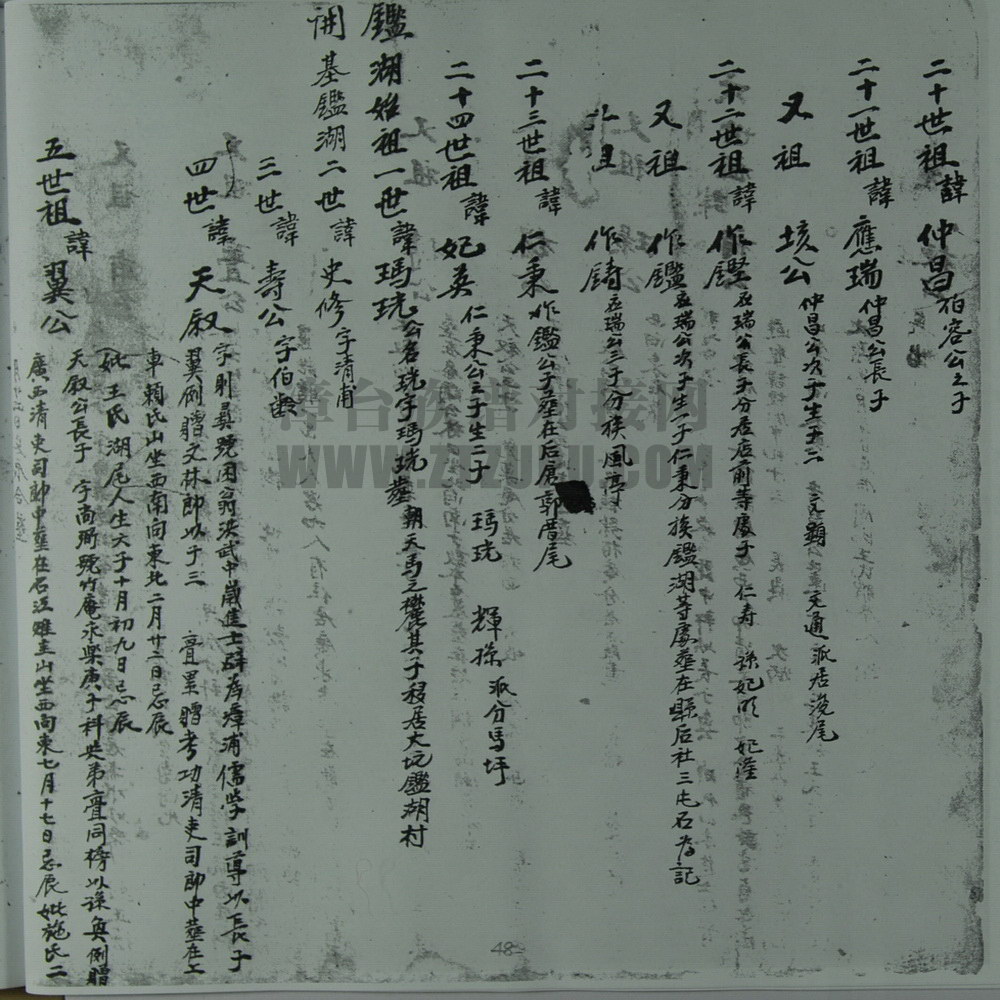 二十世祖諱 仲昌 伯容公之子
二十一世祖諱 應瑞 仲昌公長子
又祖 垓公 仲昌公次子生子二 文顯 文通派居後尾
二十二世祖諱 作鏗 應瑞公長子分居店前等處子 仁寿 孫妃明 妃隆
又祖 作鑑 應瑞公次子生一子仁秉分族鑑湖等處葬在縣后社三屯石為記
又祖 作鑄 應瑞公三子分族風亭
二十三世祖諱 仁秉 作鑑公子葬在后 郭厝尾
二十四世祖諱 妃英 仁秉公之子生二子 瑪珖 輝孫派分馬坪
鑑湖始祖一世諱瑪珖 公名珖字瑪珖葬朝天馬之麓其子移居大坑鑑湖村
開基鑑湖二世諱 史修 字清甫
三世諱 壽公 字伯齡
四世諱 天叙 字則彞號困翁洪武中歲進士辟為漳浦儒學訓導以長子
翼例贈文林郎以子三 亶累贈考功清吏司郎中葬在上
車賴氏山坐西南向東北二月廿二日忌辰
妣王氏 湖尾人生六子十月初九日忌辰
五世祖諱 翼公 天叙公長子 字尚 號竹庵永樂庚子科与弟亶同榜以孫 例贈
廣西清吏司郎中葬在石江 山坐西向東七月十七日忌辰妣施氏二
漳台族谱对接网
WWW.ZTZUPU.COM
48